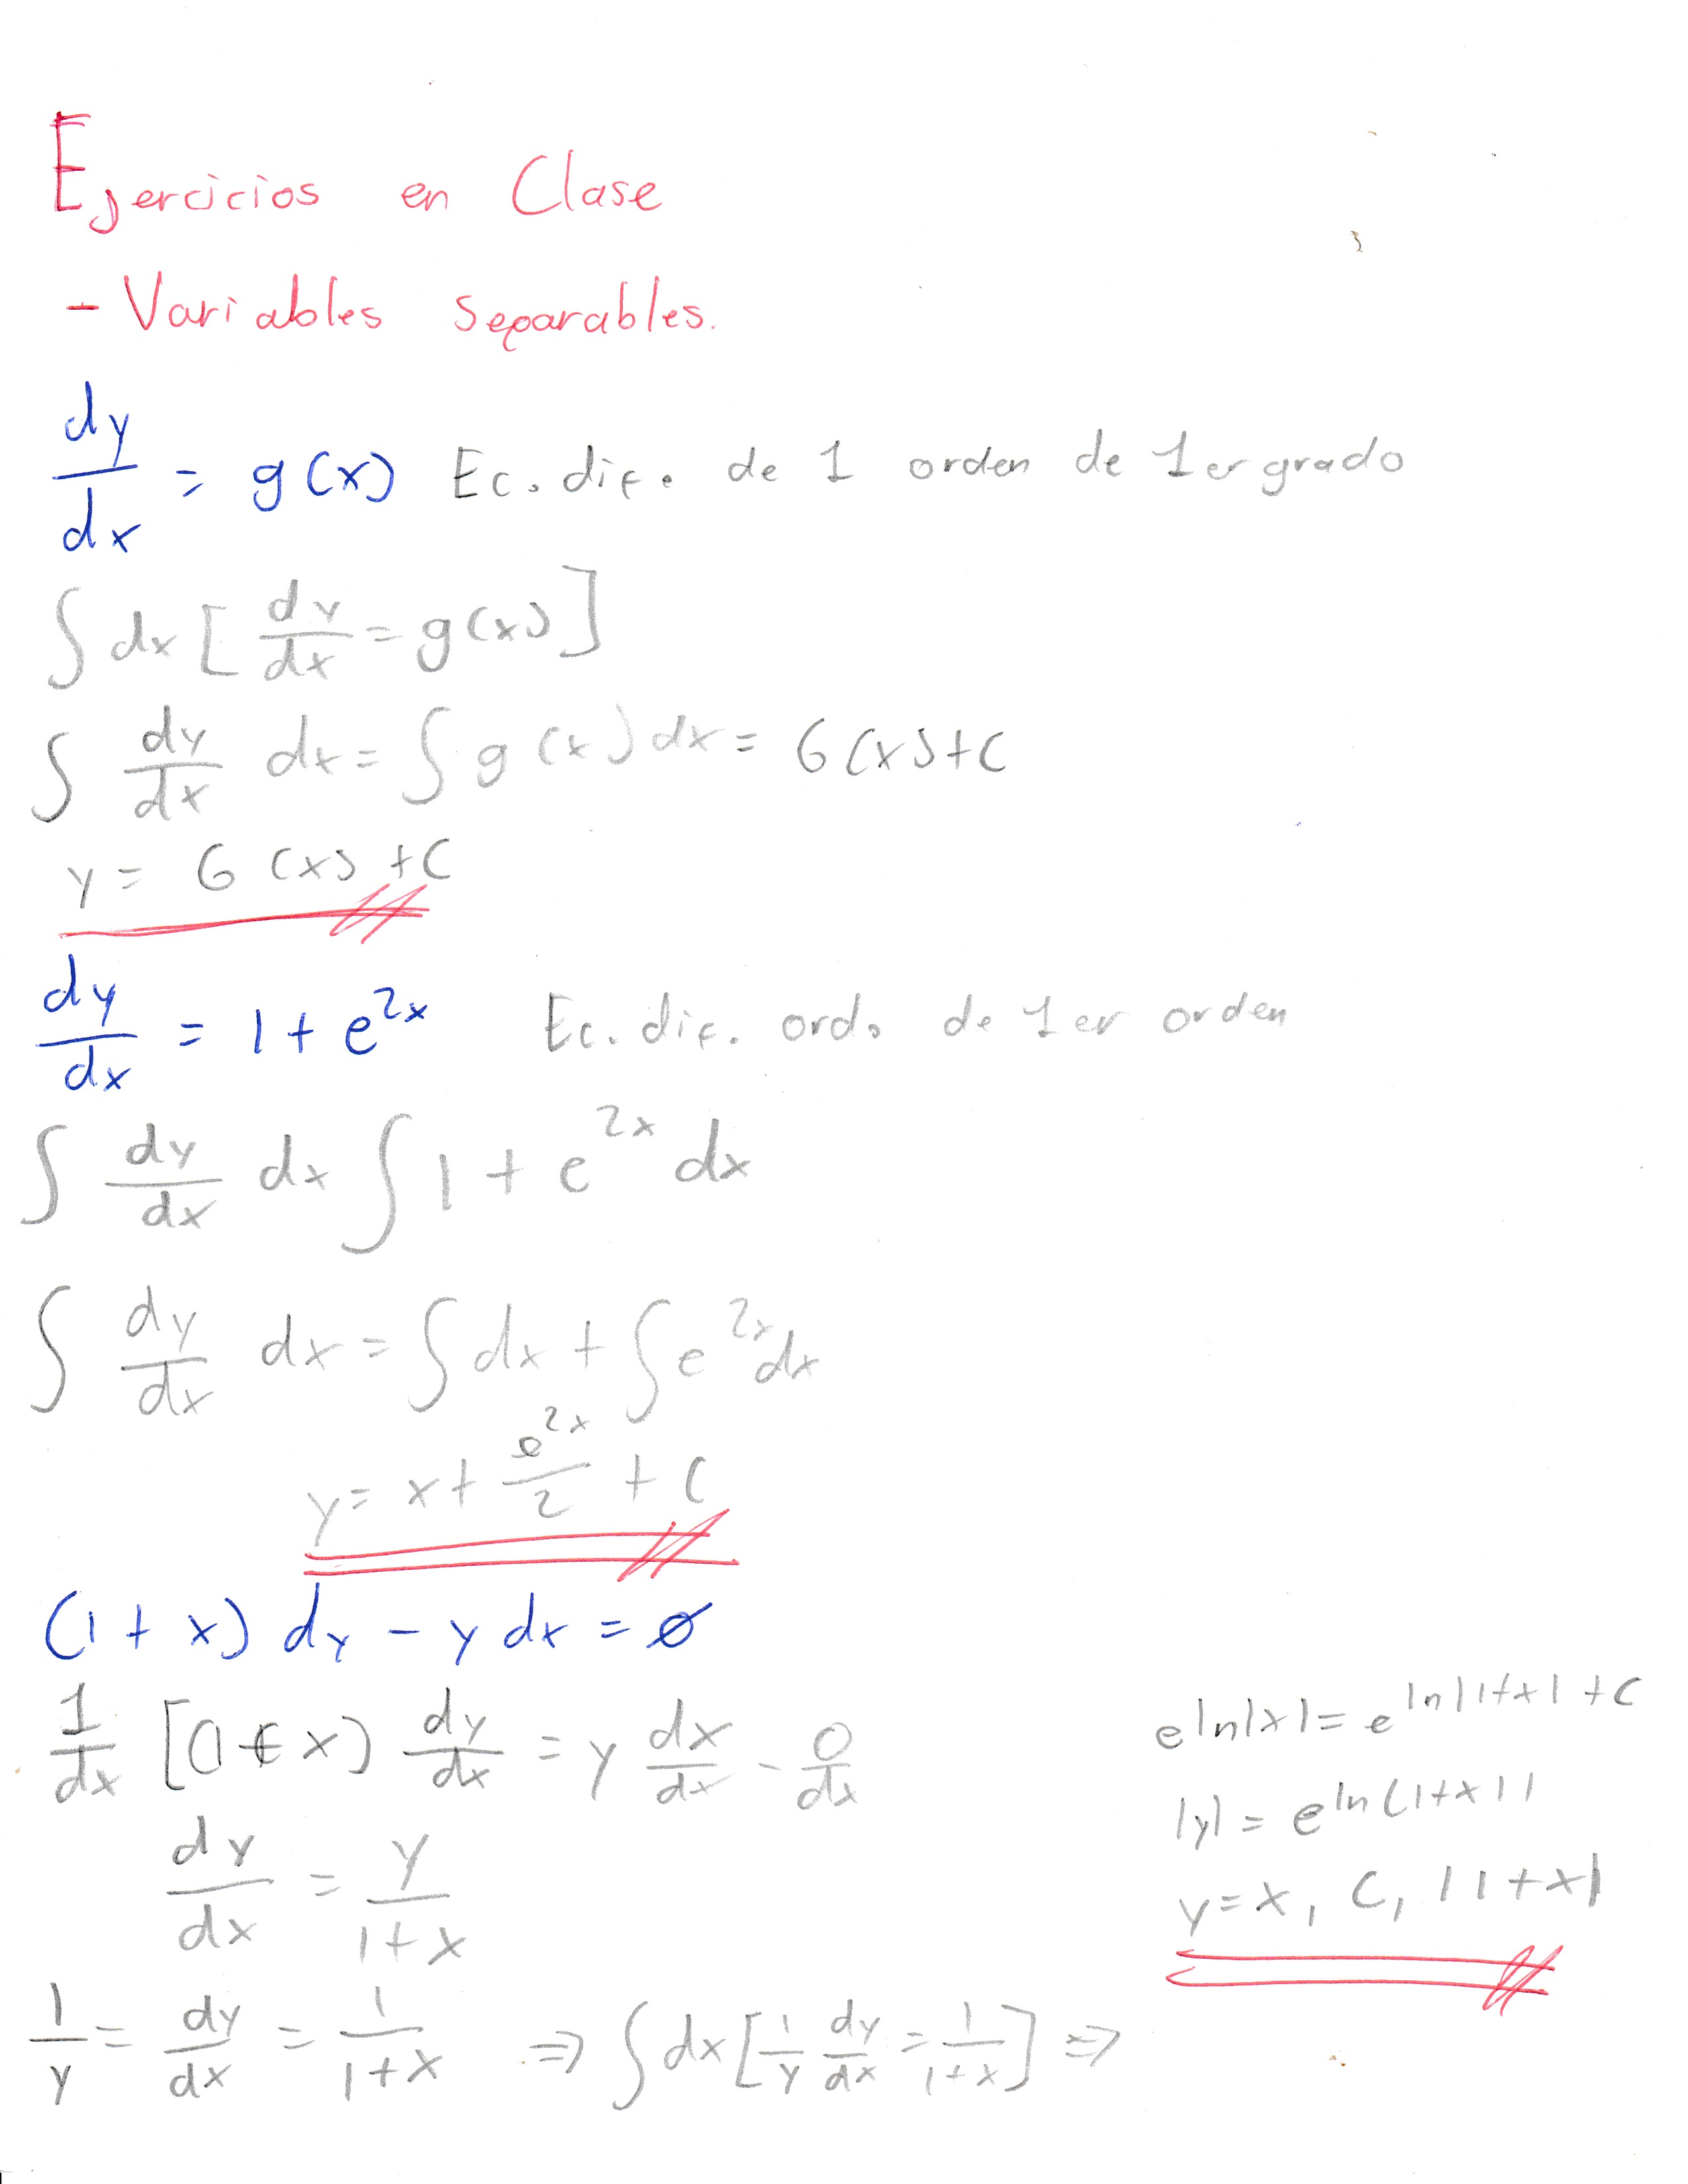 Ejercicios en Clase
- Variables Separables.
dy/dx = g(x) Ec. dif. de 1 orden de 1er grado
∫ dx [ dy/dx = g(x) ]
∫ dy/dx dx = ∫ g(x) dx = G(x) + C
y = G(x) + C
dy/dx = 1 + e^2x Ec. dif. ord. de 1er orden
∫ dy/dx dx ∫ 1 + e^2x dx
∫ dy/dx dx = ∫ dx + ∫ e^2x dx
y = x + e^2x/2 + C
(1 + x) dy - y dx = 0
1/dx [(1 + x) dy/dx = y dx/dx - 0/dx
dy/dx = y/1+x
1/y = dy/dx = 1/1+x ⇒ ∫ dx [ 1/y dy/dx = 1/1+x ] ⇒
e ln|x| = e^ln|1+x| + C
|y| = e^ln(1+x|
y = x, C, |1+x|